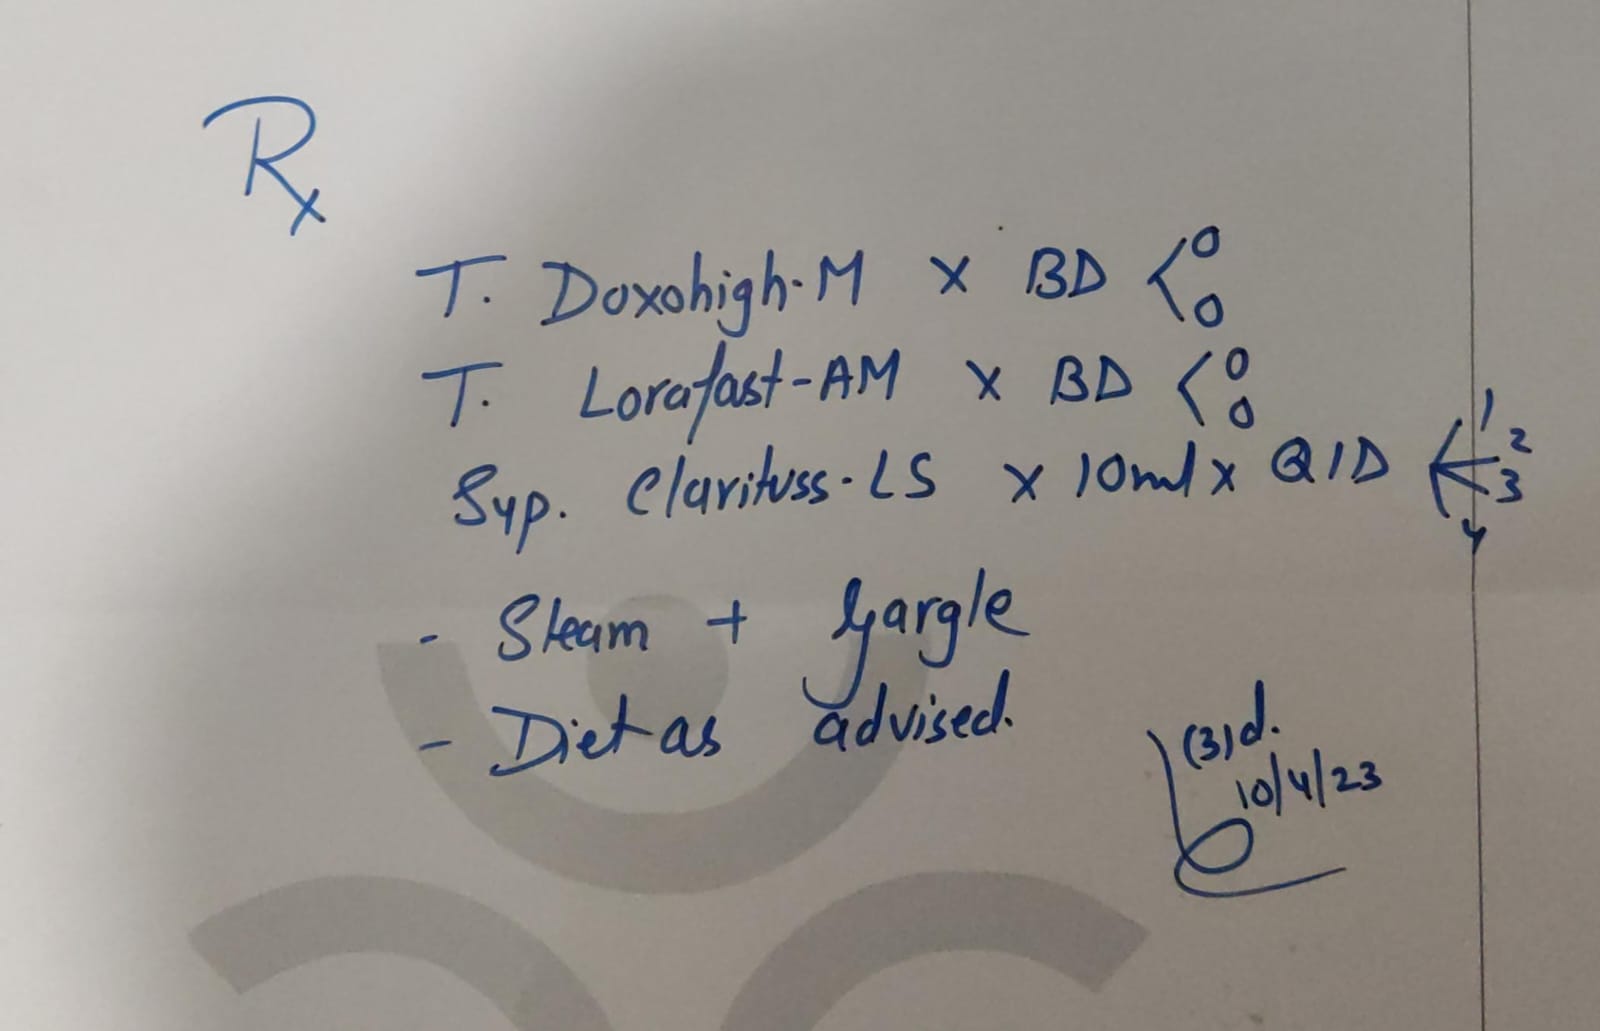 Rx
T. Doxohigh-M x BD < 0 0
T. Lorafast-AM x BD < 0 0
Syp. Clarituss-LS x 10ml x QID < 1 2 3 4
- Steam + gargle
- Diet as advised.
(3)d.
10/4/23